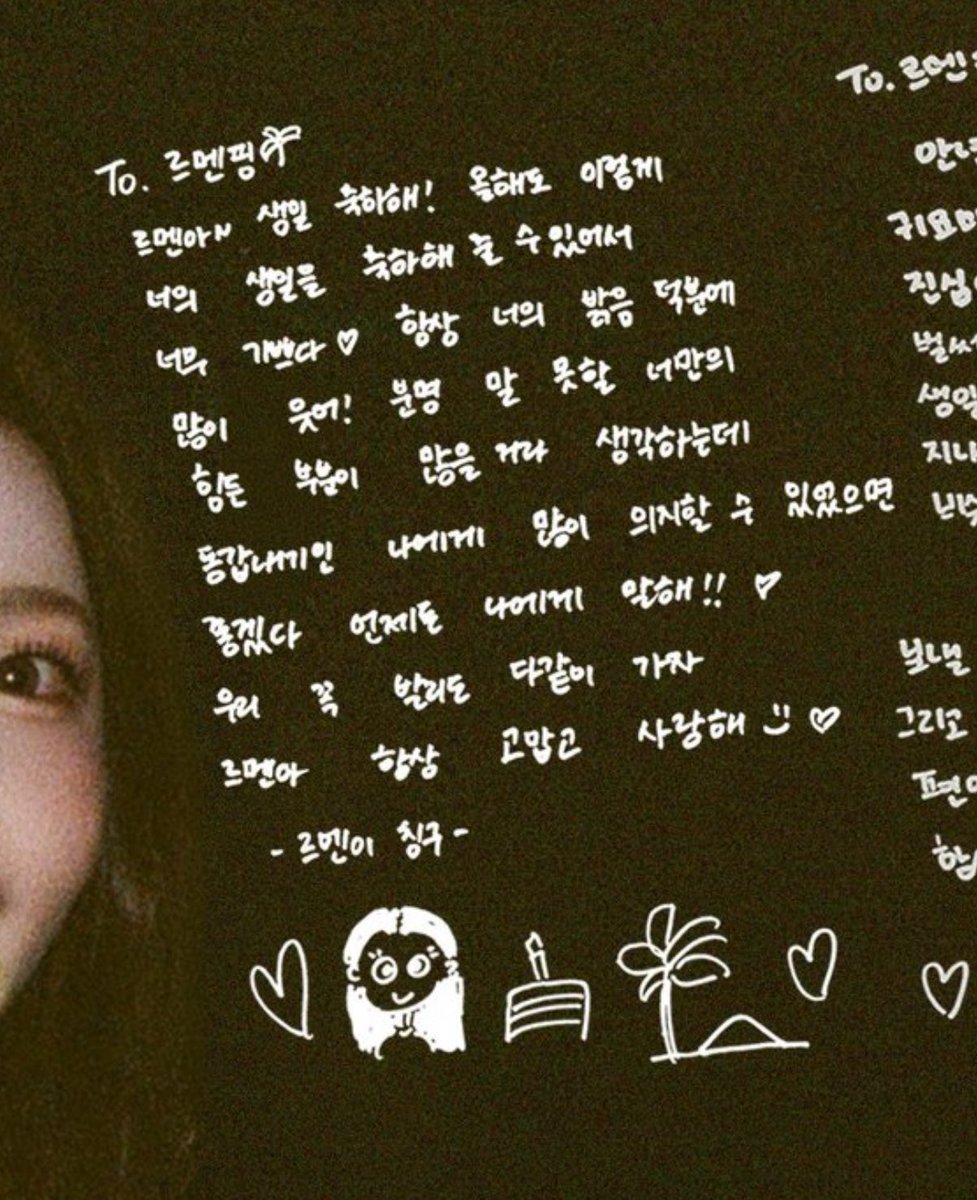 To. 르멘핑
르멘아~ 생일 축하해! 올해도 이렇게
너의 생일을 축하해 줄 수 있어서
너무 기쁘다♡ 항상 너의 밝음 덕분에
많이 웃어! 분명 말 못할 너만의
힘든 부분이 많을 거라 생각하는데
동갑내기인 나에게 많이 의지할 수 있었으면
좋겠다 언제든 나에게 말해!! ♡
우리 꼭 발리도 다같이 가자
르멘아 항상 고맙고 사랑해 :) ♡
- 르멘이 칭구 -
To. 르멘
귀요
진심
벌써
지나
보낼
그리고